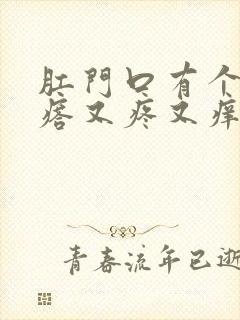 肛門口有个
瘩又疼又痒
青春流年已逝